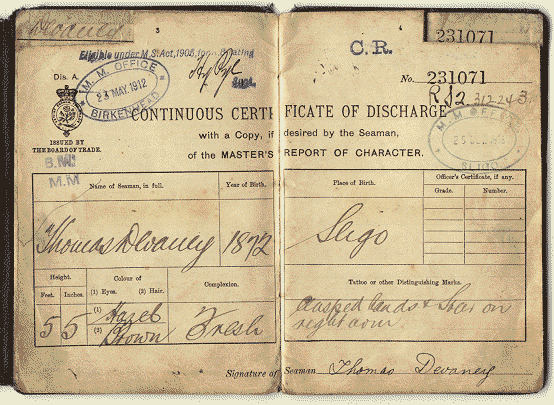 Devaney
231071
Eligible under M.S. Act, 1906, for
C.R.
Dis. A.
M. M. OFFICE
23 MAY. 1912
BIRKENHEAD
No. 231071
RS2 312243
CONTINUOUS CERTIFICATE OF DISCHARGE
M. M. OFFICE
SLIGO
ISSUED BY
THE BOARD OF TRADE.
with a Copy, if desired by the Seaman,
of the MASTER'S REPORT OF CHARACTER.
B.M.
M.M
Name of Seaman, in full.
Year of Birth.
Place of Birth.
Officer's Certificate, if any.
Grade.
Number.
Thomas Devaney
1872
Sligo
Height.
Feet.
Inches.
Colour of
(1) Eyes. (2) Hair.
Complexion.
Tattoo or other Distinguishing Marks.
5
5
(1) Hazel
(2) Brown
Fresh
Clasped hands & Star on
right arm.
Signature of Seaman Thomas Devaney